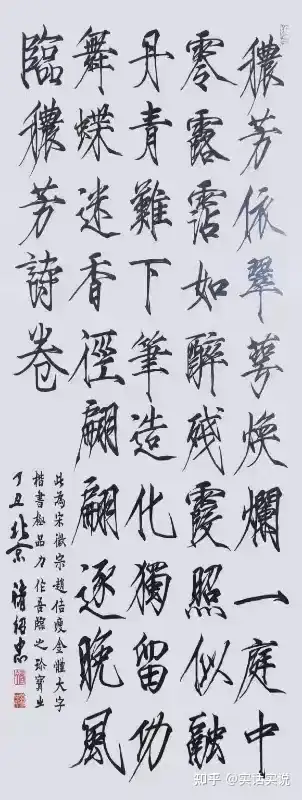 穠芳依翠萼煥爛一庭中
零露霑如醉残霞照似融
丹青難下筆造化獨留功
舞蝶迷香徑翩翩逐晚風
臨穠芳詩卷
此為宋徽宗趙佶瘦金體大字
楷書極品力作吾臨之珍寶也
丁丑北京
知乎 @实话实说